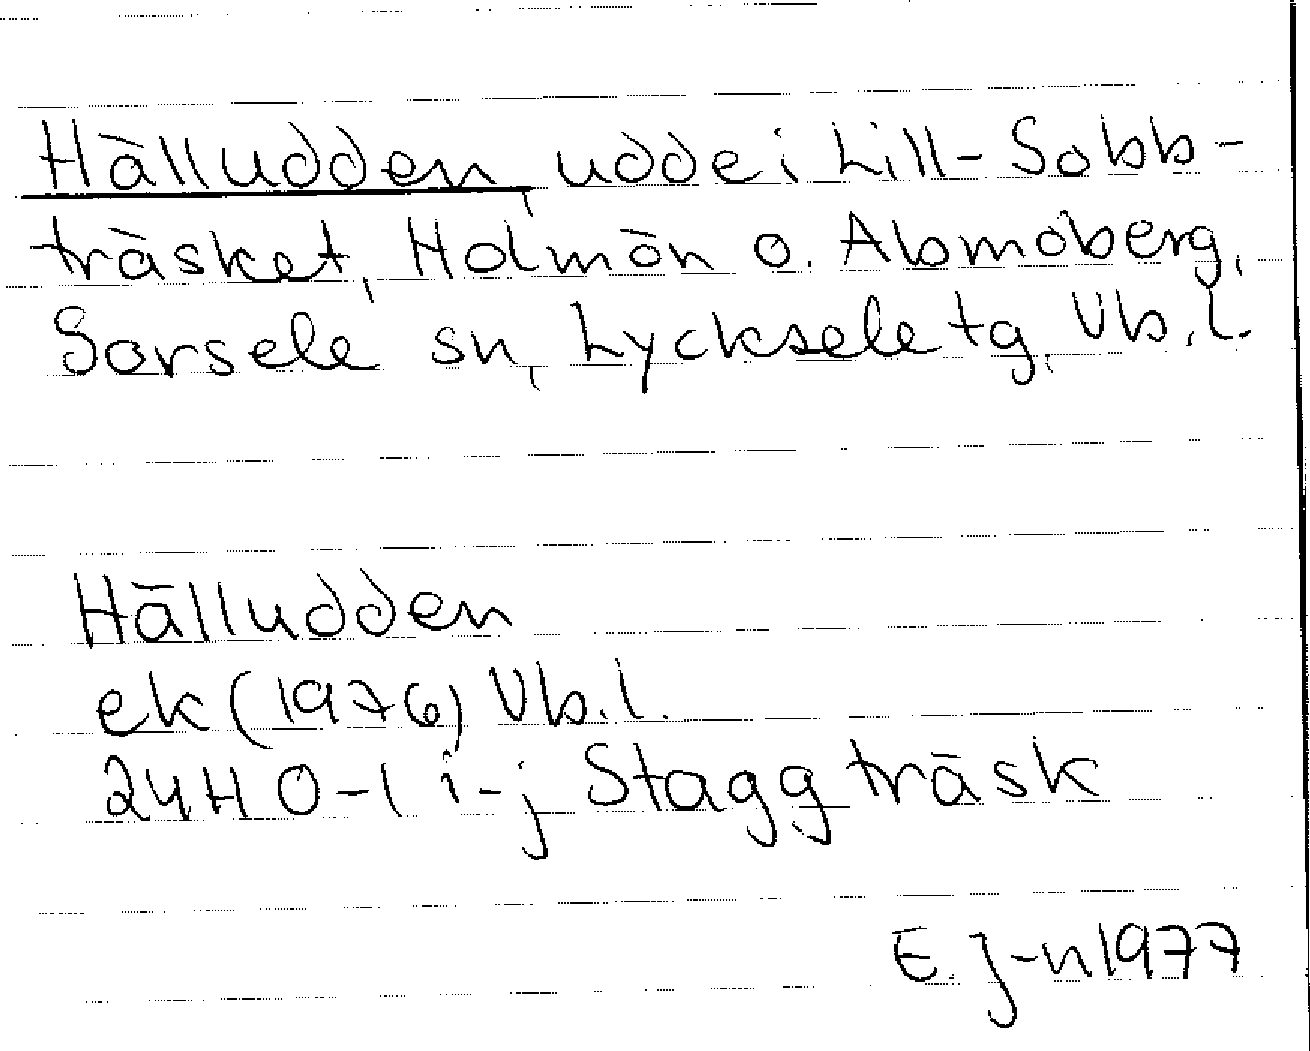 Hälludden, udde i Lill-Sabb-
träsket, Holmön o. Abmoberg,
Sorsele sn, Lycksele tg, Vb.l.
Hälludden
ek (1976) Vb.l.
24H 0-1 i-j Staggträsk
E. J-n 1977